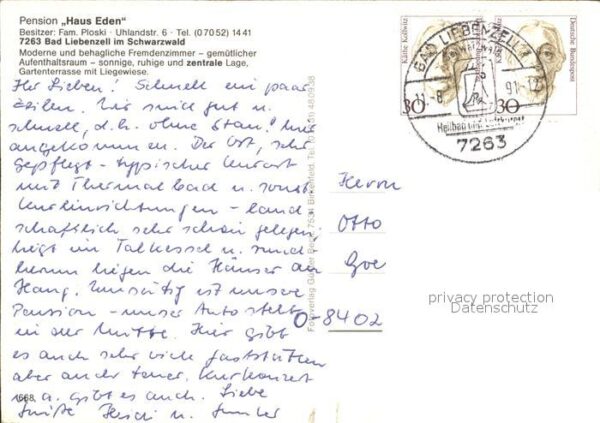 Pension „Haus Eden"
Besitzer: Fam. Ploski · Uhlandstr. 6 · Tel. (07052) 1441
7263 Bad Liebenzell im Schwarzwald
Moderne und behagliche Fremdenzimmer – gemütlicher
Aufenthaltsraum – sonnige, ruhige und zentrale Lage,
Gartenterrasse mit Liegewiese.
Ihr Lieben! Schnell ein paar
Zeilen. Wir sind gut u.
schnell, d.h. ohne Stau! hier
angekommen. Der Ort, sehr
gepflegt - typischer Kurort
mit Thermalbad u. sonst.
Kureinrichtungen - land
schaftlich sehr schön gelegen,
liegt im Talkessel u. rund
herum liegen die Häuser am
Hang. Einseitig ist unsere
Pension - unser Auto steht
in der Mitte. Hier gibt
es auch sehr viele Gaststätten
aber auch teuer. Kurkonzert
u. a. gibt es auch. Liebe
Grüße Heidi u.
1668
Fotoverlag Günter 7534 Birkenfeld, Tel. 480938
Käthe Kollwitz
30
Deutsche Bundespost
30
BAD LIEBENZELL 1
Schwarzwald
11.-8.
91.-12
Heilbad und Luftkurort
7263
Herrn
Otto
Goe
0-8402
privacy protection
Datenschutz